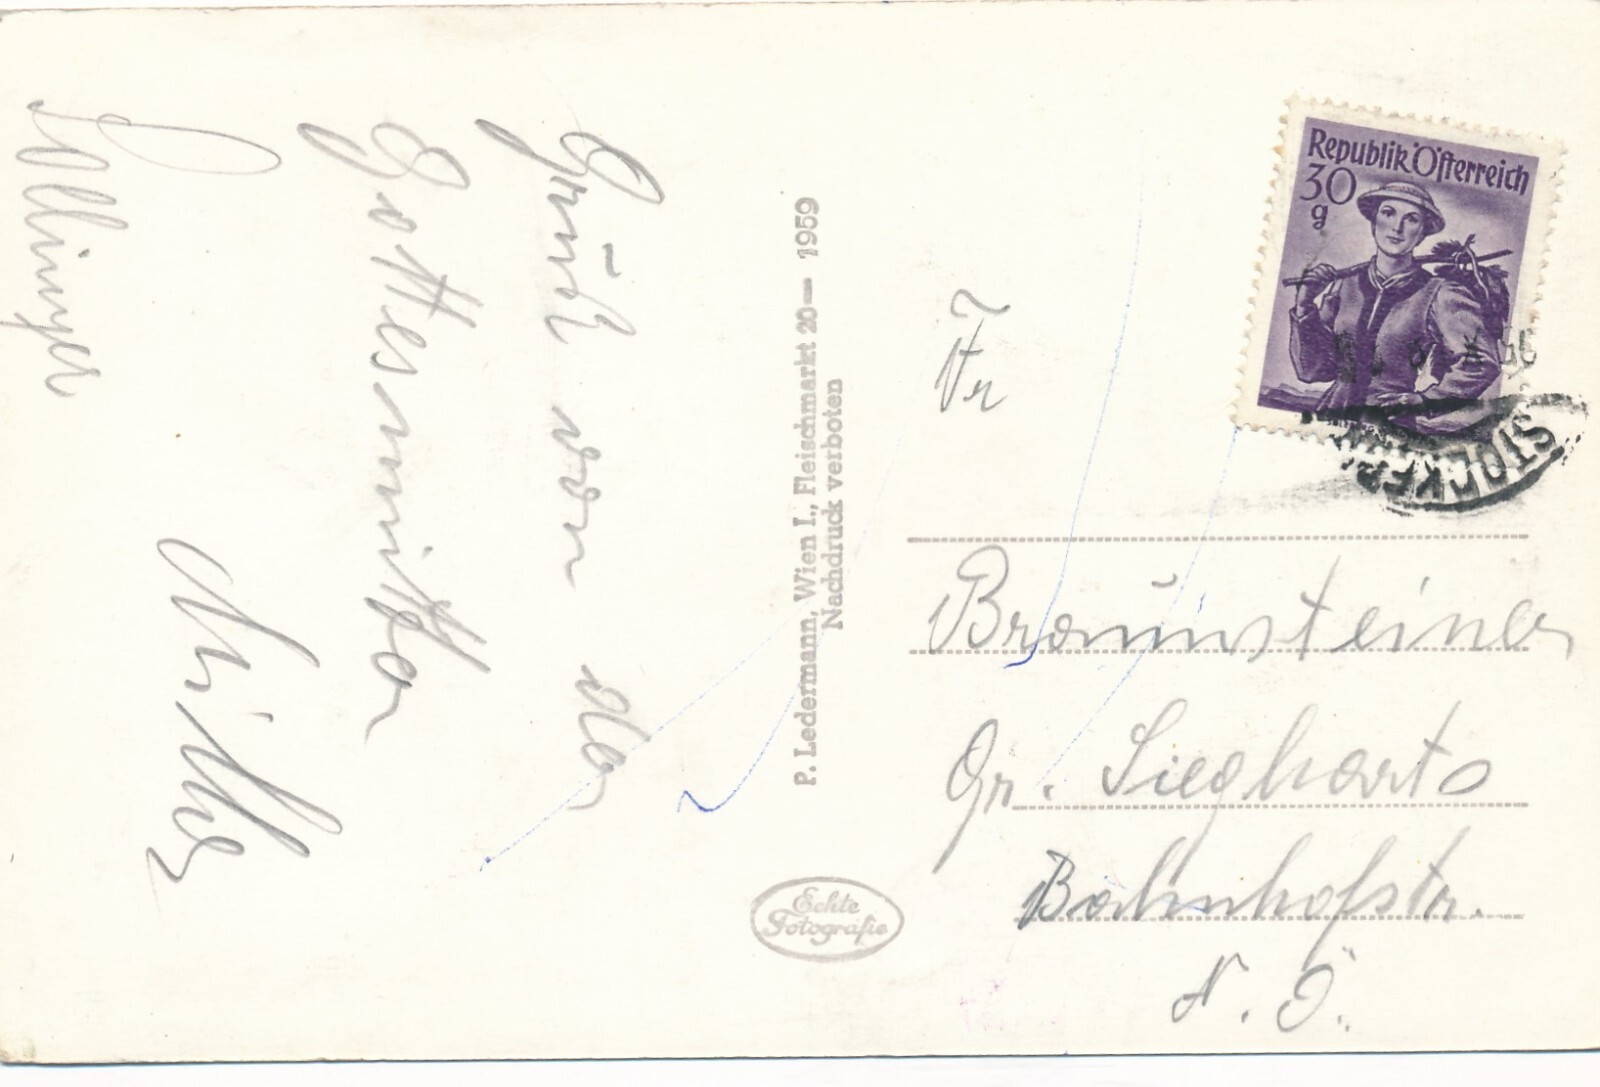 Gruß von der
Gottesmutter
Müller
Sollinger
P. Ledermann, Wien I., Fleischmarkt 20 — 1959
Nachdruck verboten
Echte
Fotografie
Republik Österreich
30
g
STOCKER
Fr
Braunsteiner
Gr. Siegharts
Bahnhofstr.
N.Ö.